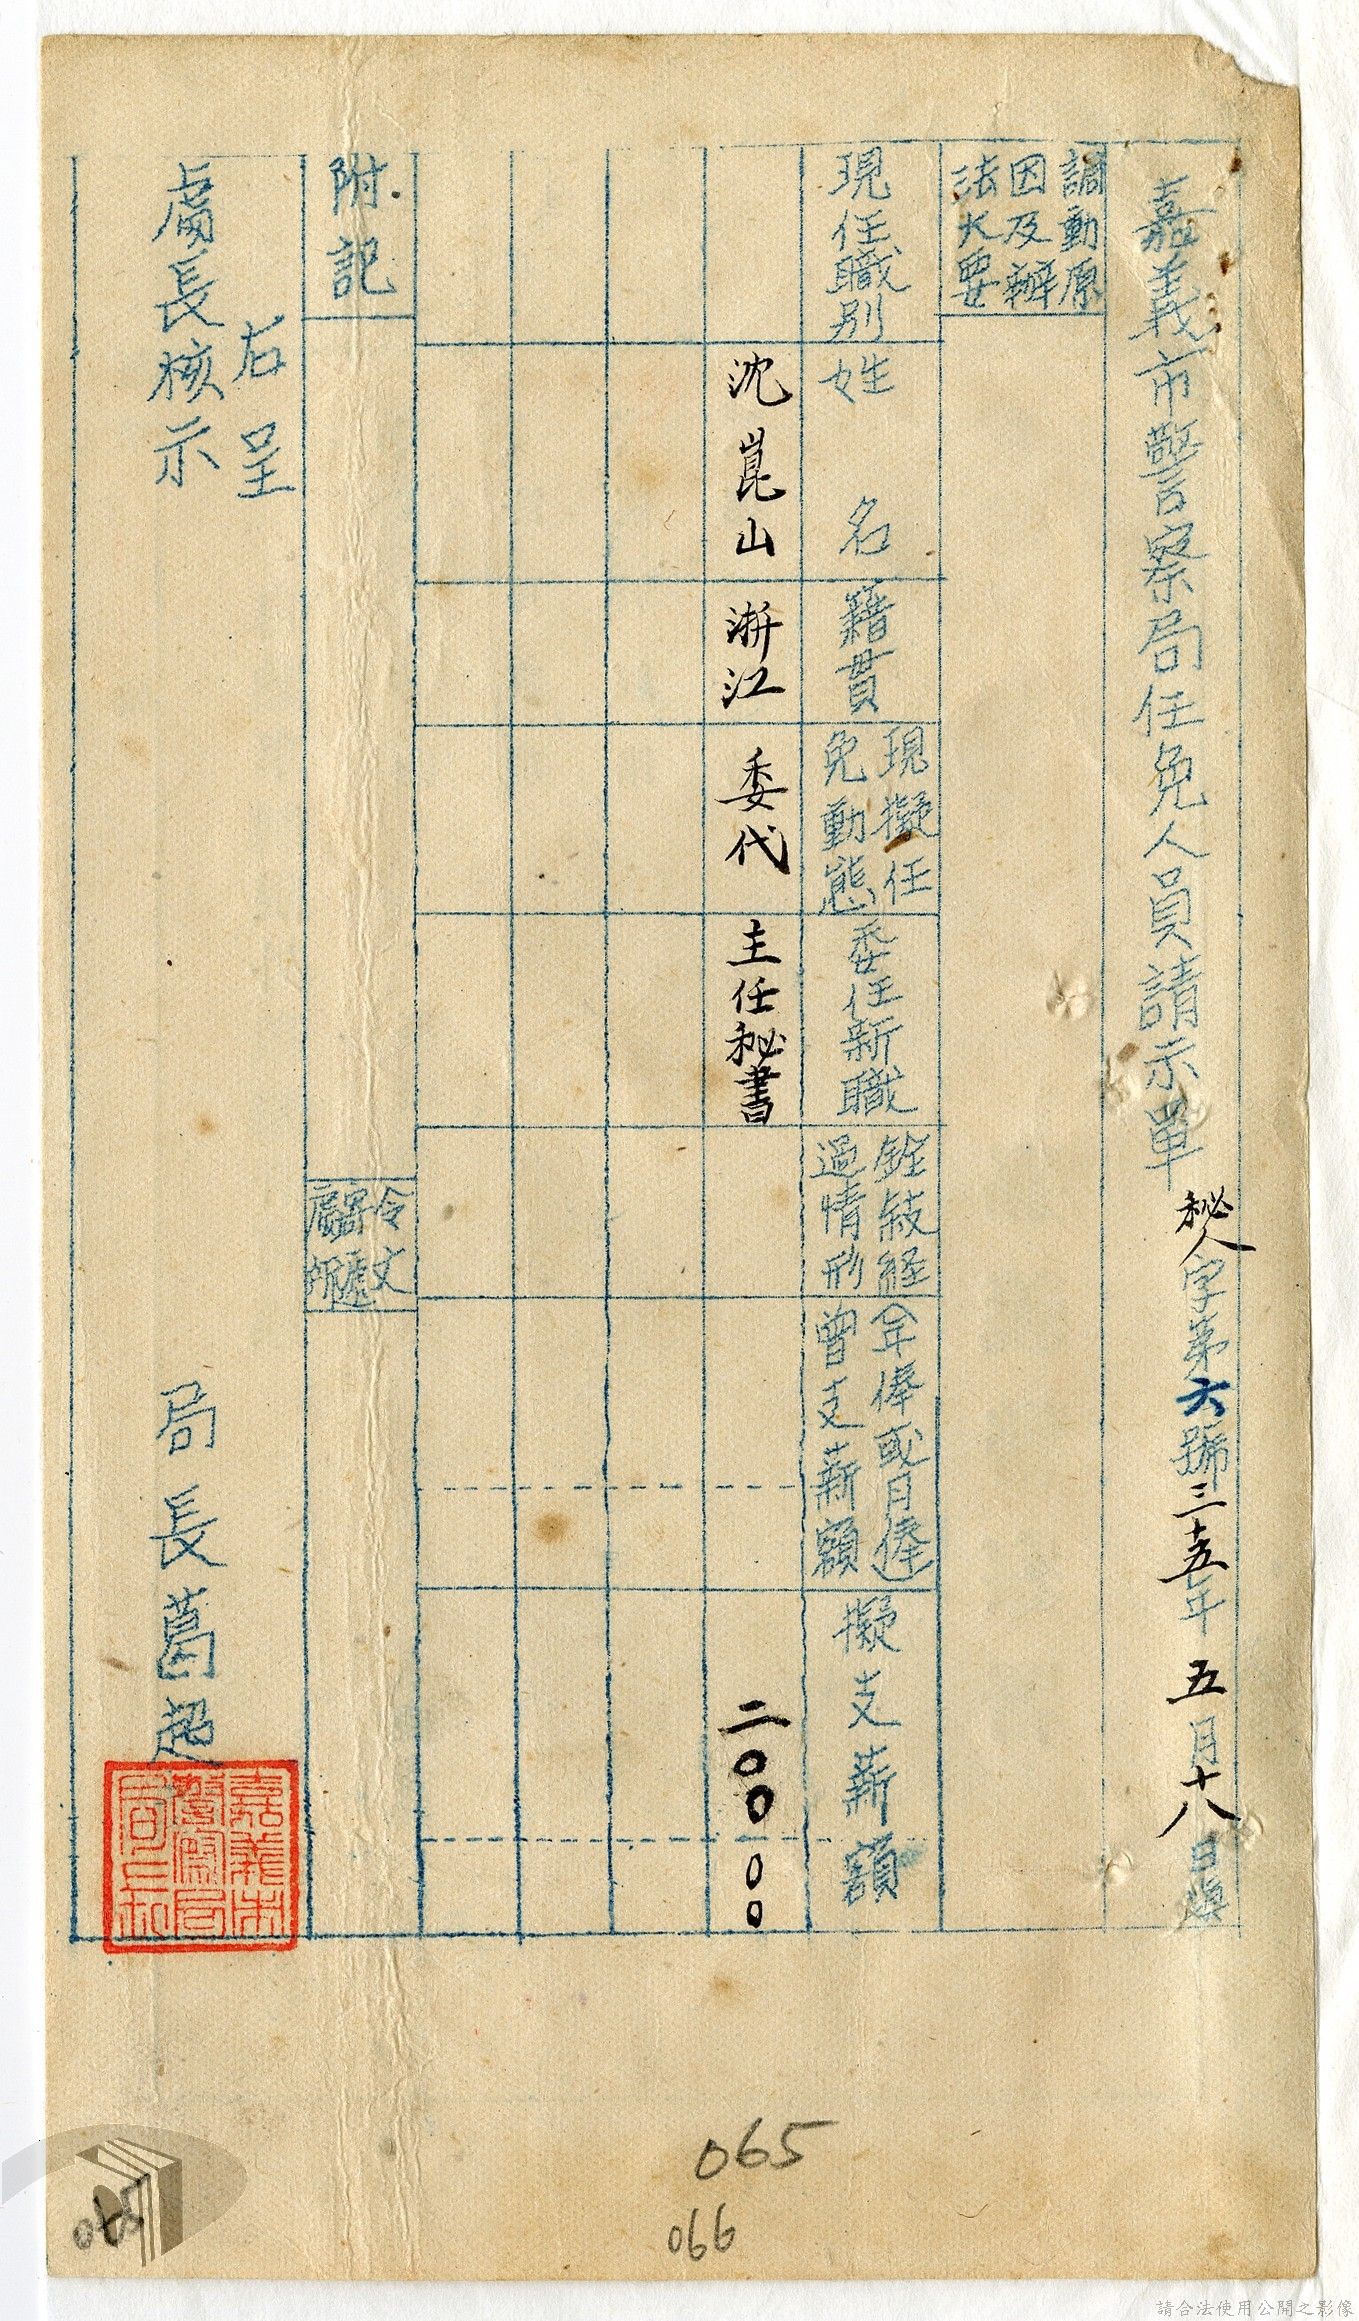 嘉義市警察局任免人員請示單 秘人字第六號三十五年五月十八日填
調動原
因及辦
法大要
現任職別
姓名
籍貫
現擬任
免動態
委任新職
銓敍経
過情形
(年俸或月俸)
曾支薪額
擬支薪額
沈崑山
浙江
委代
主任秘書
二〇〇〇〇
附記
令文
寄遞
處所
右呈
處長核示
局長葛超
嘉義市
警察局
局長印
065
066
065
請合法使用公開之影像